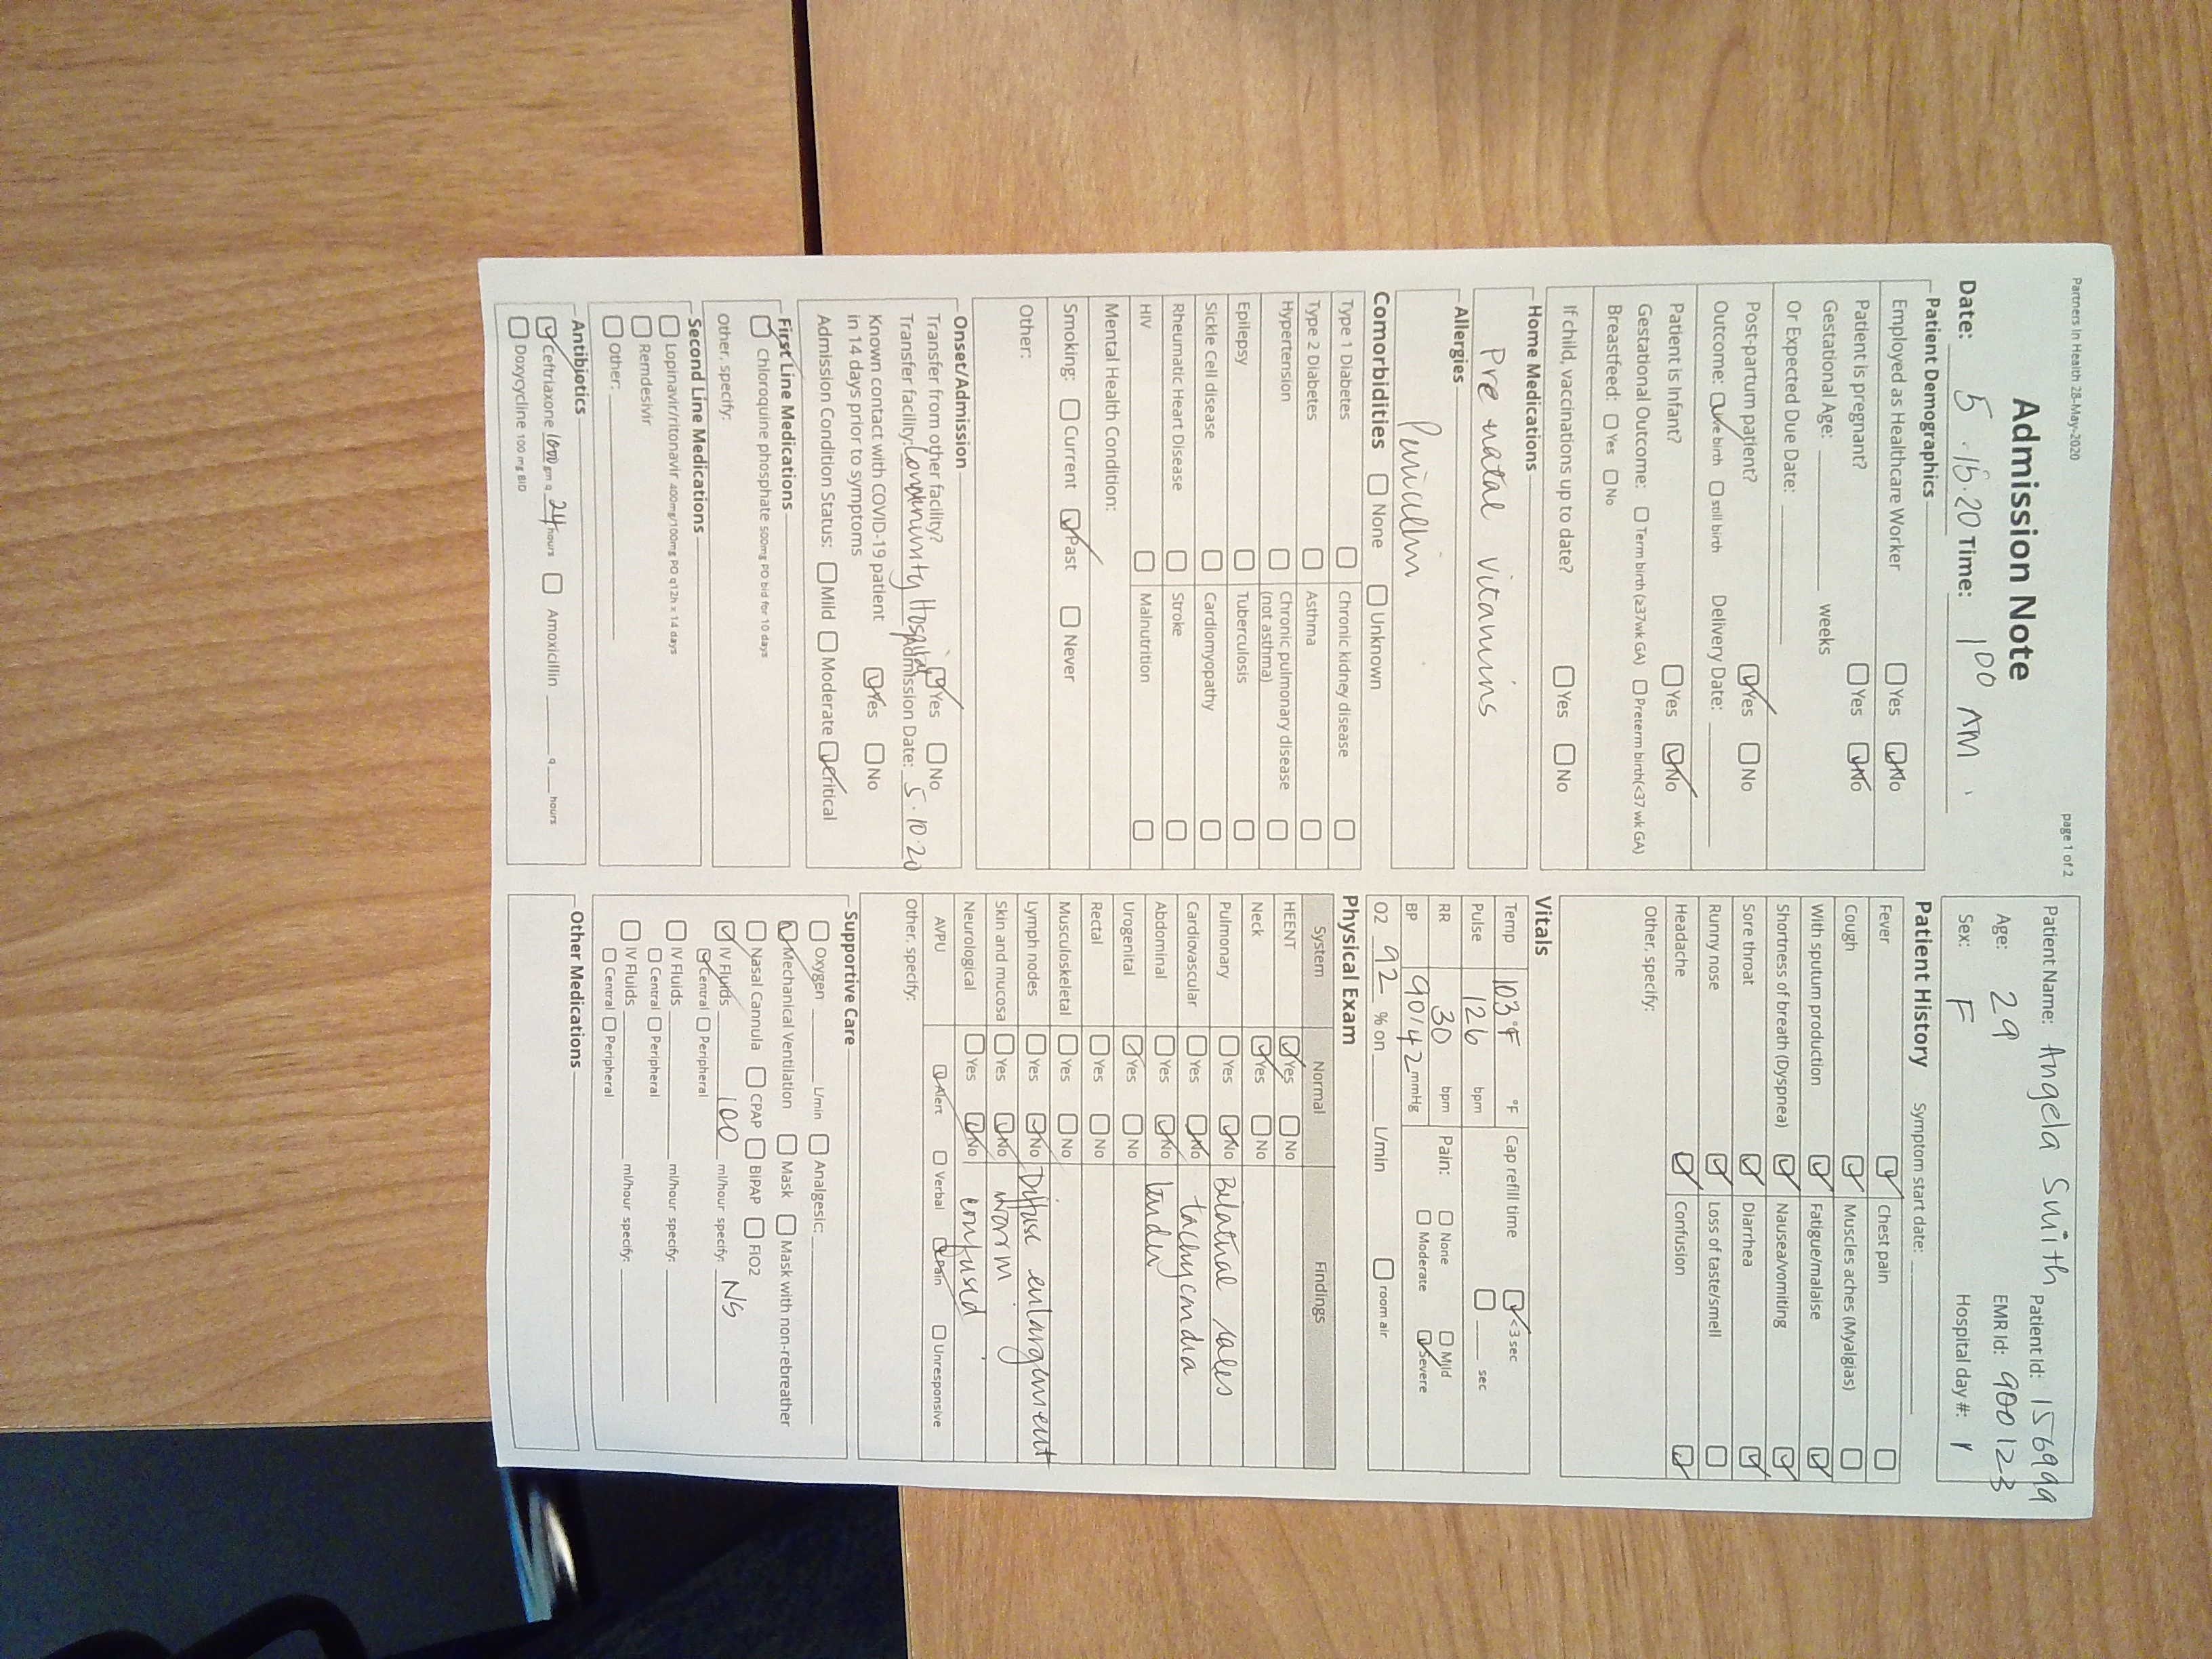 Partners In Health 28-May-2020
page 1 of 2
Admission Note
Date: 5.16.20 Time: 1 00 AM
Patient Demographics
Employed as Healthcare Worker Yes No
Patient is pregnant? Yes No
Gestational Age: weeks
Or Expected Due Date:
Post-partum patient? Yes No
Outcome: Live birth still birth Delivery Date:
Patient is Infant? Yes No
Gestational Outcome: Term birth (≥37wk GA) Preterm birth(<37 wk GA)
Breastfeed: Yes No
If child, vaccinations up to date? Yes No
Home Medications
Pre natal vitamins
Allergies
Penicillin
Comorbidities None Unknown
Type 1 Diabetes Chronic kidney disease
Type 2 Diabetes Asthma
Hypertension Chronic pulmonary disease (not asthma)
Epilepsy Tuberculosis
Sickle Cell disease Cardiomyopathy
Rheumatic Heart Disease Stroke
HIV Malnutrition
Mental Health Condition:
Smoking: Current Past Never
Other:
Onset/Admission
Transfer from other facility? Yes No
Transfer facility: Community Hospital Admission Date: 5.10.20
Known contact with COVID-19 patient
in 14 days prior to symptoms Yes No
Admission Condition Status: Mild Moderate Critical
First Line Medications
Chloroquine phosphate 500mg PO bid for 10 days
Other, specify:
Second Line Medications
Lopinavir/ritonavir 400mg/100mg PO q12h x 14 days
Remdesivir
Other:
Antibiotics
Ceftriaxone 1000 gm q 24 hours Amoxicillin q hours
Doxycycline 100 mg BID
Patient Name: Angela Smith Patient Id: 156999
Age: 29 EMR Id: 900123
Sex: F Hospital day #: 1
Patient History Symptom start date:
Fever Chest pain
Cough Muscles aches (Myalgias)
With sputum production Fatigue/malaise
Shortness of breath (Dyspnea) Nausea/vomiting
Sore throat Diarrhea
Runny nose Loss of taste/smell
Headache Confusion
Other, specify:
Vitals
Temp 103°F °F Cap refill time <3 sec
Pulse 126 bpm sec
RR 30 bpm Pain: None Mild
BP 90/42 mmHg Moderate Severe
O2 92 % on L/min room air
Physical Exam
System Normal Findings
HEENT Yes No
Neck Yes No
Pulmonary Yes No Bilatural rales
Cardiovascular Yes No tachycardia
Abdominal Yes No tender
Urogenital Yes No
Rectal Yes No
Musculoskeletal Yes No
Lymph nodes Yes No Diffuse enlargement
Skin and mucosa Yes No warm
Neurological Yes No confused
AVPU Alert Verbal Pain Unresponsive
Other, specify:
Supportive Care
Oxygen L/min Analgesic:
Mechanical Ventilation Mask Mask with non-rebreather
Nasal Cannula CPAP BIPAP FIO2
IV Fluids 100 ml/hour specify: NS
Central Peripheral
IV Fluids ml/hour specify:
Central Peripheral
IV Fluids ml/hour specify:
Central Peripheral
Other Medications